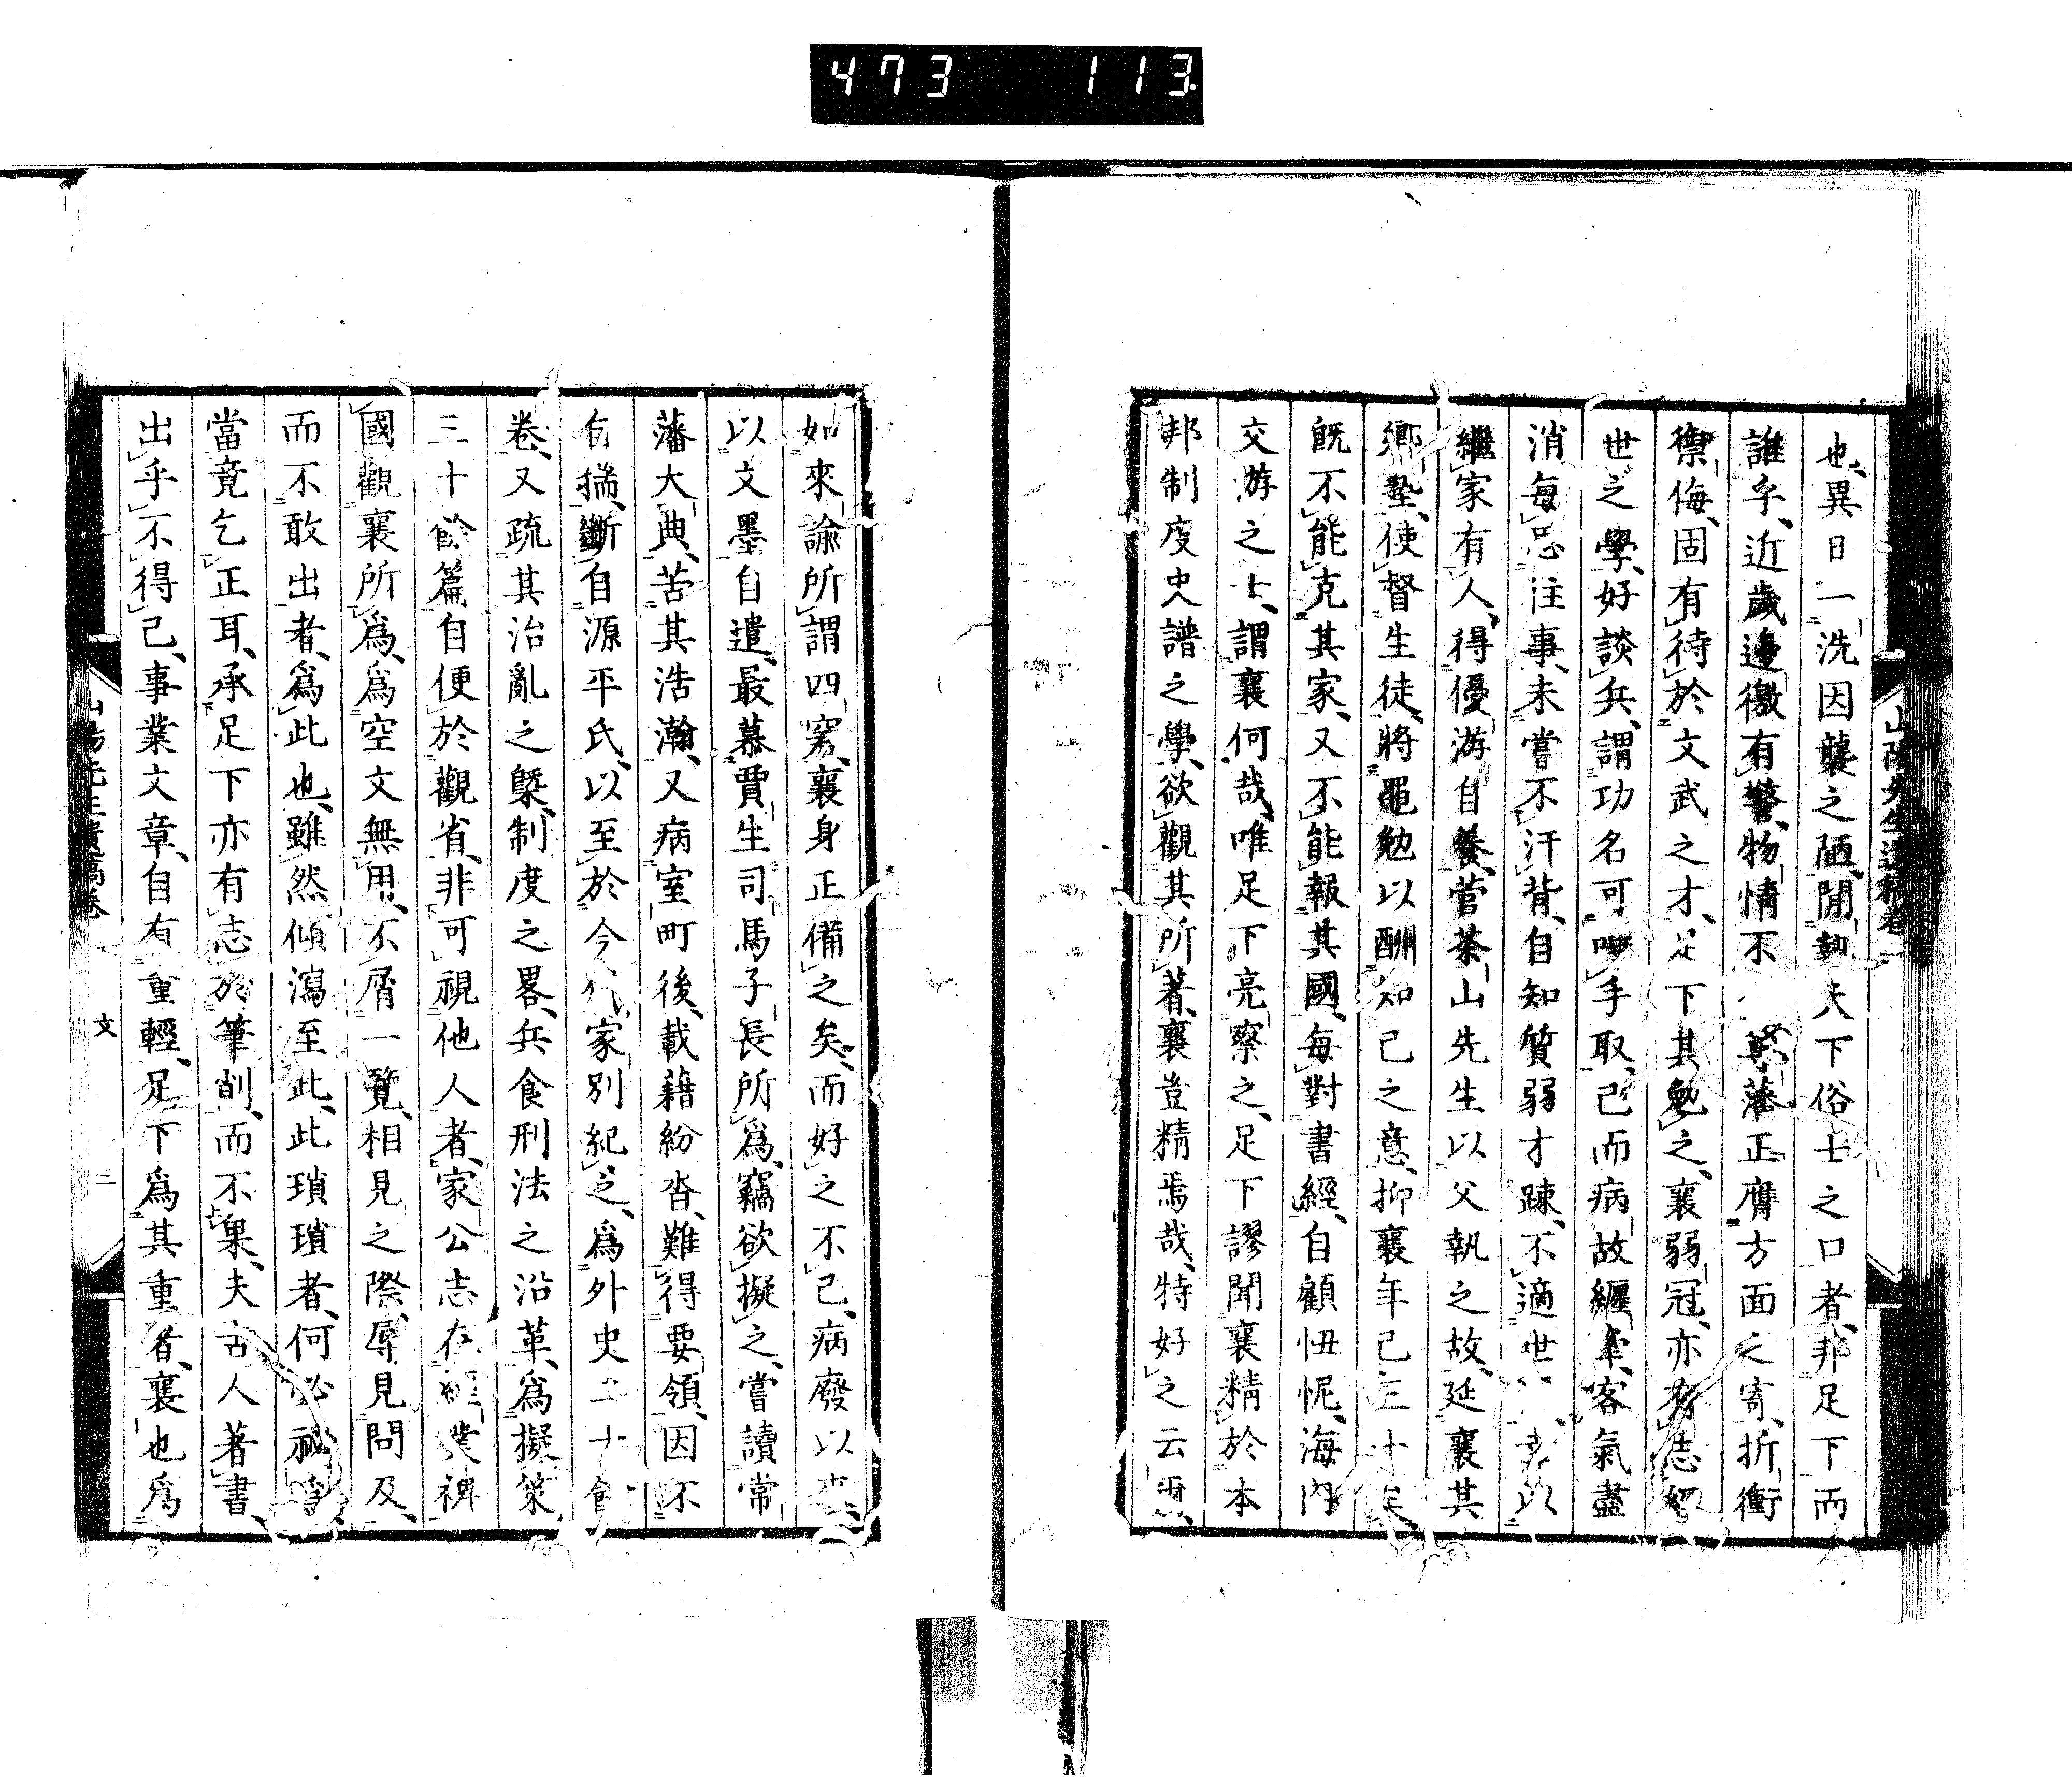 473 113
山陽先生遺稿卷一
也、異日一洗因襲之陋、開執天下俗士之口者、非足下而
誰乎、近歲邊徼有警、物情不、尊藩正膺方面之寄、折衝
禦侮、固有待於文武之才、足下其勉之、襄弱冠、亦有志經
世之學、好談兵、謂功名可唾手取、已而病故纏牽、客氣盡
消、每思往事、未嘗不汗背、自知質弱才踈、不適世、以
繼家有人、得優游自養、菅茶山先生以父執之故、延襄其
鄉塾、使督生徒、將黽勉以酬知己之意、抑襄年已三十矣、
既不能克其家、又不能報其國、每對書經、自顧忸怩、海內
交游之士、謂襄何哉、唯足下亮察之、足下謬聞襄精於本
邦制度史譜之學、欲觀其所著、襄豈精焉哉、特好之云爾、
如來諭所謂四窮、襄身正備之矣、而好之不已、病廢以來、
以文墨自遣、最慕賈生司馬子長所爲、竊欲擬之、嘗讀常
藩大典、苦其浩瀚、又病室町後、載藉紛沓、難得要領、因不
自揣、斷自源平氏、以至於今代、家別紀之、爲外史二十餘
卷、又疏其治亂之槩、制度之畧、兵食刑法之沿革、爲擬策
三十餘篇、自便於觀省、非可視他人者、家公志在經業裨
國、觀襄所爲、爲空文無用、不屑一覽、相見之際、辱見問及、
而不敢出者、爲此也、雖然傾瀉至此、此瑣瑣者、何必祕、
當竟乞正耳、承足下亦有志於筆削、而不果、夫古人著書、
出乎不得已、事業文章、自有重輕、足下爲其重者、襄也爲
山陽先生遺稿卷
文
二